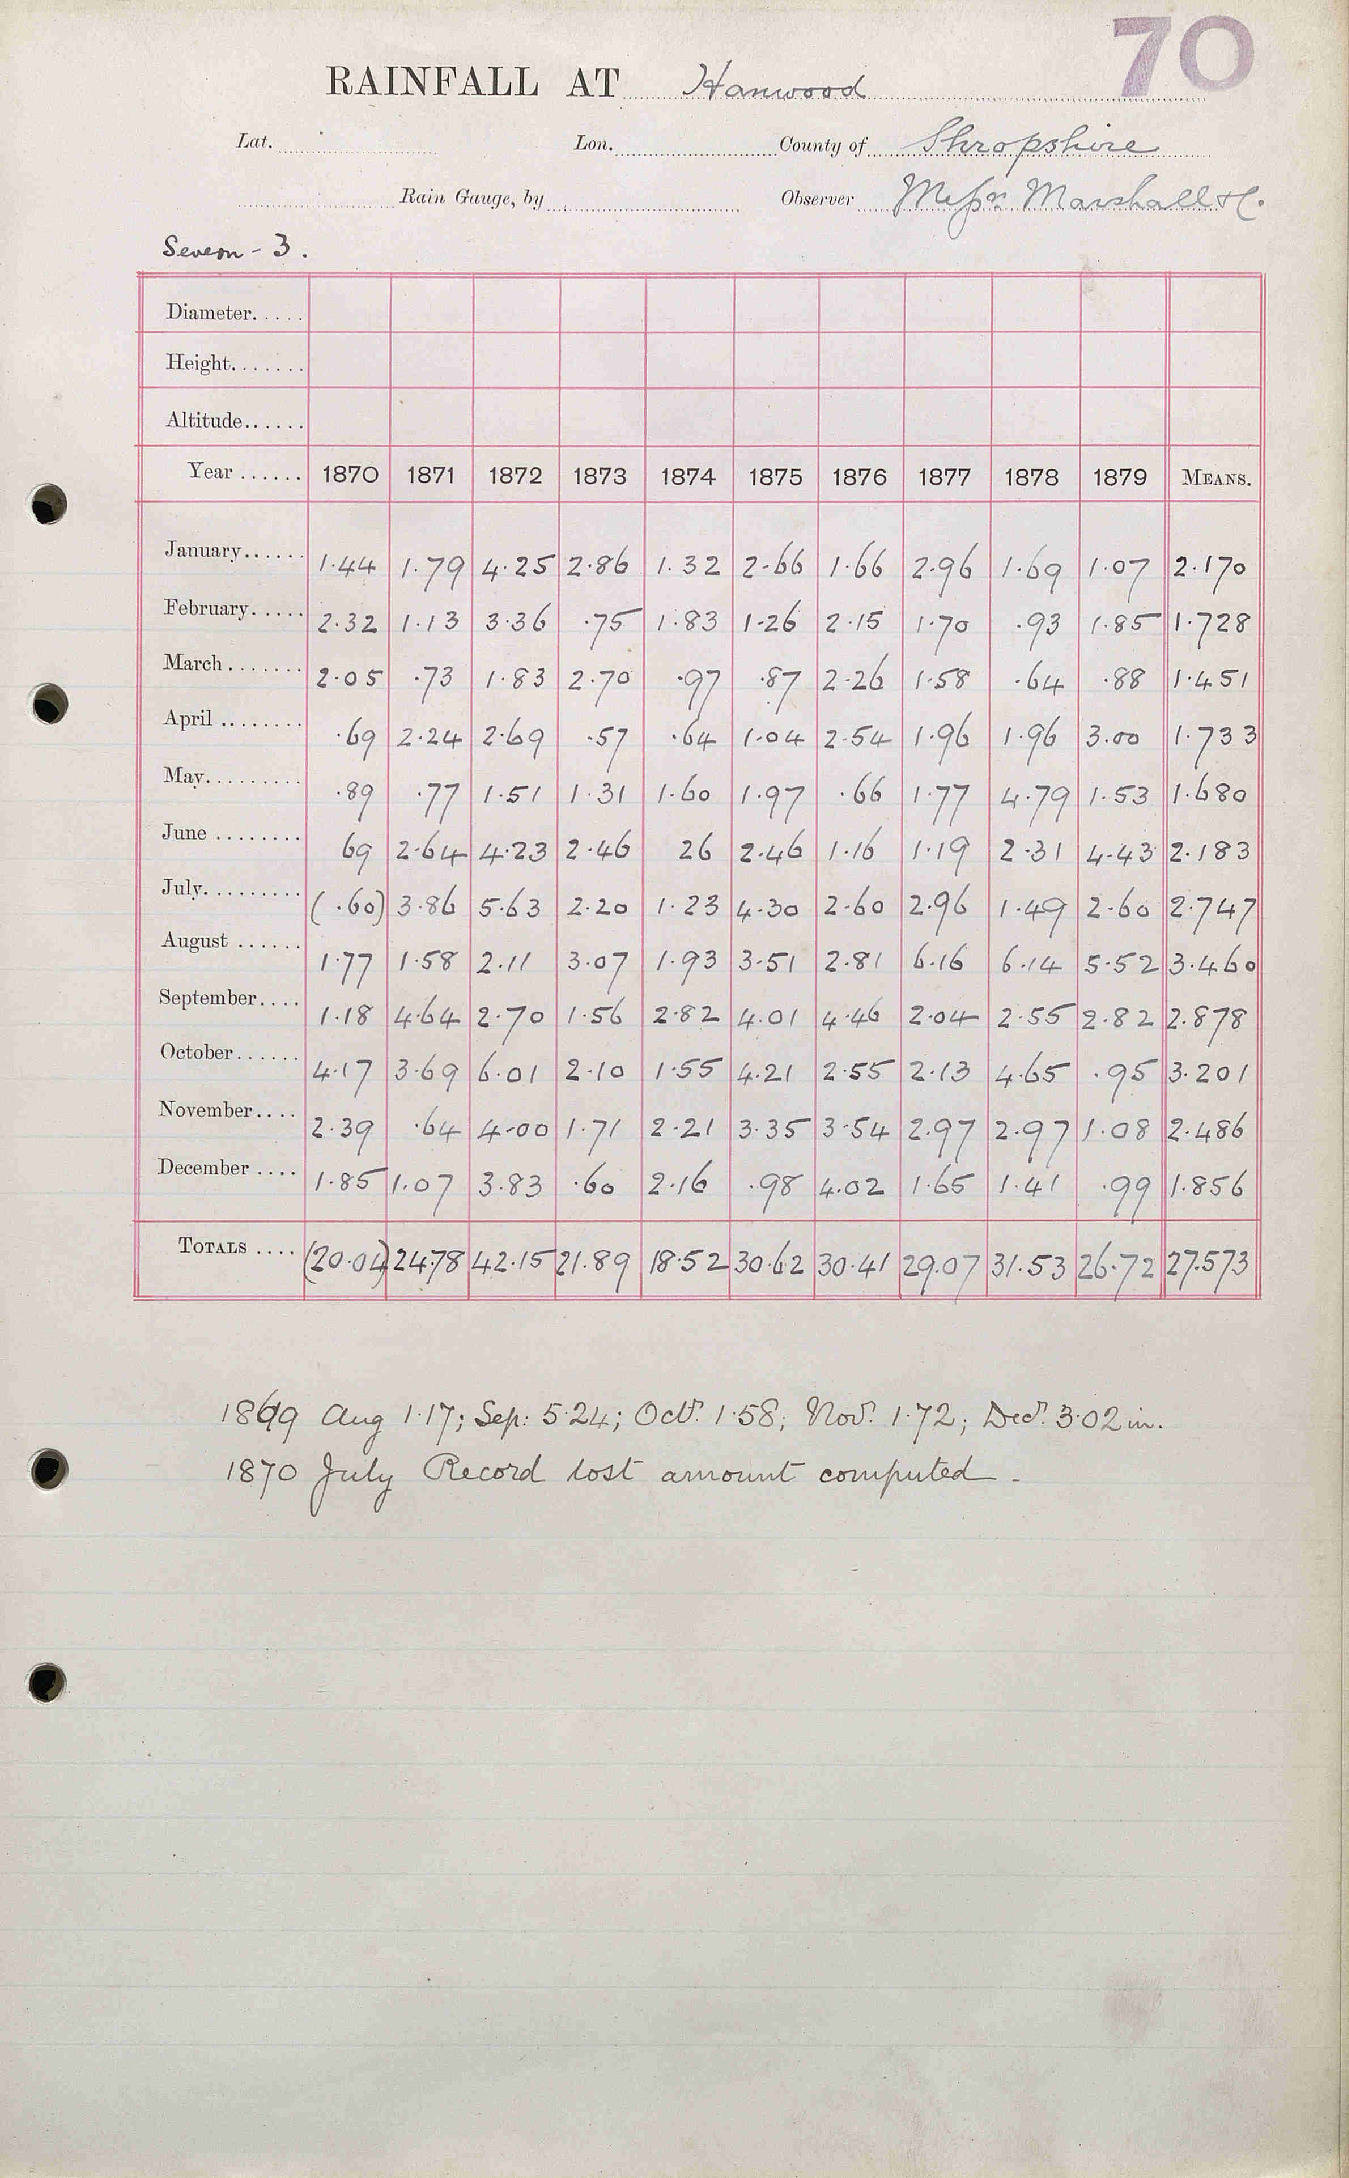 70
RAINFALL AT Hanwood
Lat. Lon. County of Shropshire
Rain Gauge, by Observer Messrs Marshall & C.
Severn - 3.
Diameter.....
Height.......
Altitude......
Year ...... 1870 1871 1872 1873 1874 1875 1876 1877 1878 1879 MEANS.
January...... 1.44 1.79 4.25 2.86 1.32 2.66 1.66 2.96 1.69 1.07 2.170
February..... 2.32 1.13 3.36 .75 1.83 1.26 2.15 1.70 .93 1.85 1.728
March....... 2.05 .73 1.83 2.70 .97 .87 2.26 1.58 .64 .88 1.451
April ........ .69 2.24 2.69 .57 .64 1.04 2.54 1.96 1.96 3.00 1.733
May......... .89 .77 1.51 1.31 1.60 1.97 .66 1.77 4.79 1.53 1.680
June ........ 69 2.64 4.23 2.46 26 2.46 1.16 1.19 2.31 4.43 2.183
July......... (.60) 3.86 5.63 2.20 1.23 4.30 2.60 2.96 1.49 2.60 2.747
August ...... 1.77 1.58 2.11 3.07 1.93 3.51 2.81 6.16 6.14 5.52 3.460
September.... 1.18 4.64 2.70 1.56 2.82 4.01 4.46 2.04 2.55 2.82 2.878
October...... 4.17 3.69 6.01 2.10 1.55 4.21 2.55 2.13 4.65 .95 3.201
November.... 2.39 .64 4.00 1.71 2.21 3.35 3.54 2.97 2.97 1.08 2.486
December .... 1.85 1.07 3.83 .60 2.16 .98 4.02 1.65 1.41 .99 1.856
TOTALS .... (20.04) 24.78 42.15 21.89 18.52 30.62 30.41 29.07 31.53 26.72 27.573
1869 Aug 1.17; Sep: 5.24; Oct. 1.58; Nov. 1.72; Dec. 3.02 in.
1870 July Record lost amount computed -